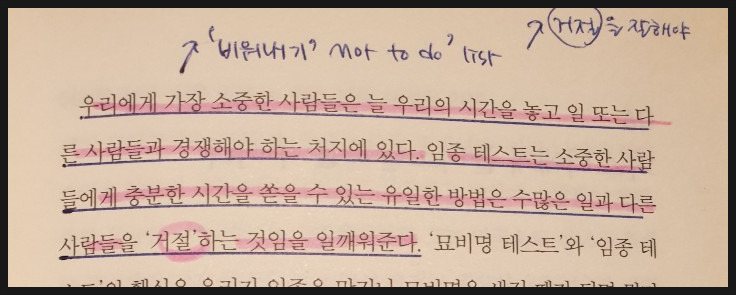 ↗ '비워내기' Not to do' list
↗ 거절을 잘해야
우리에게 가장 소중한 사람들은 늘 우리의 시간을 놓고 일 또는 다
른 사람들과 경쟁해야 하는 처지에 있다. 임종 테스트는 소중한 사람
들에게 충분한 시간을 쏟을 수 있는 유일한 방법은 수많은 일과 다른
사람들을 '거절'하는 것임을 일깨워준다. '묘비명 테스트'와 '임종 테